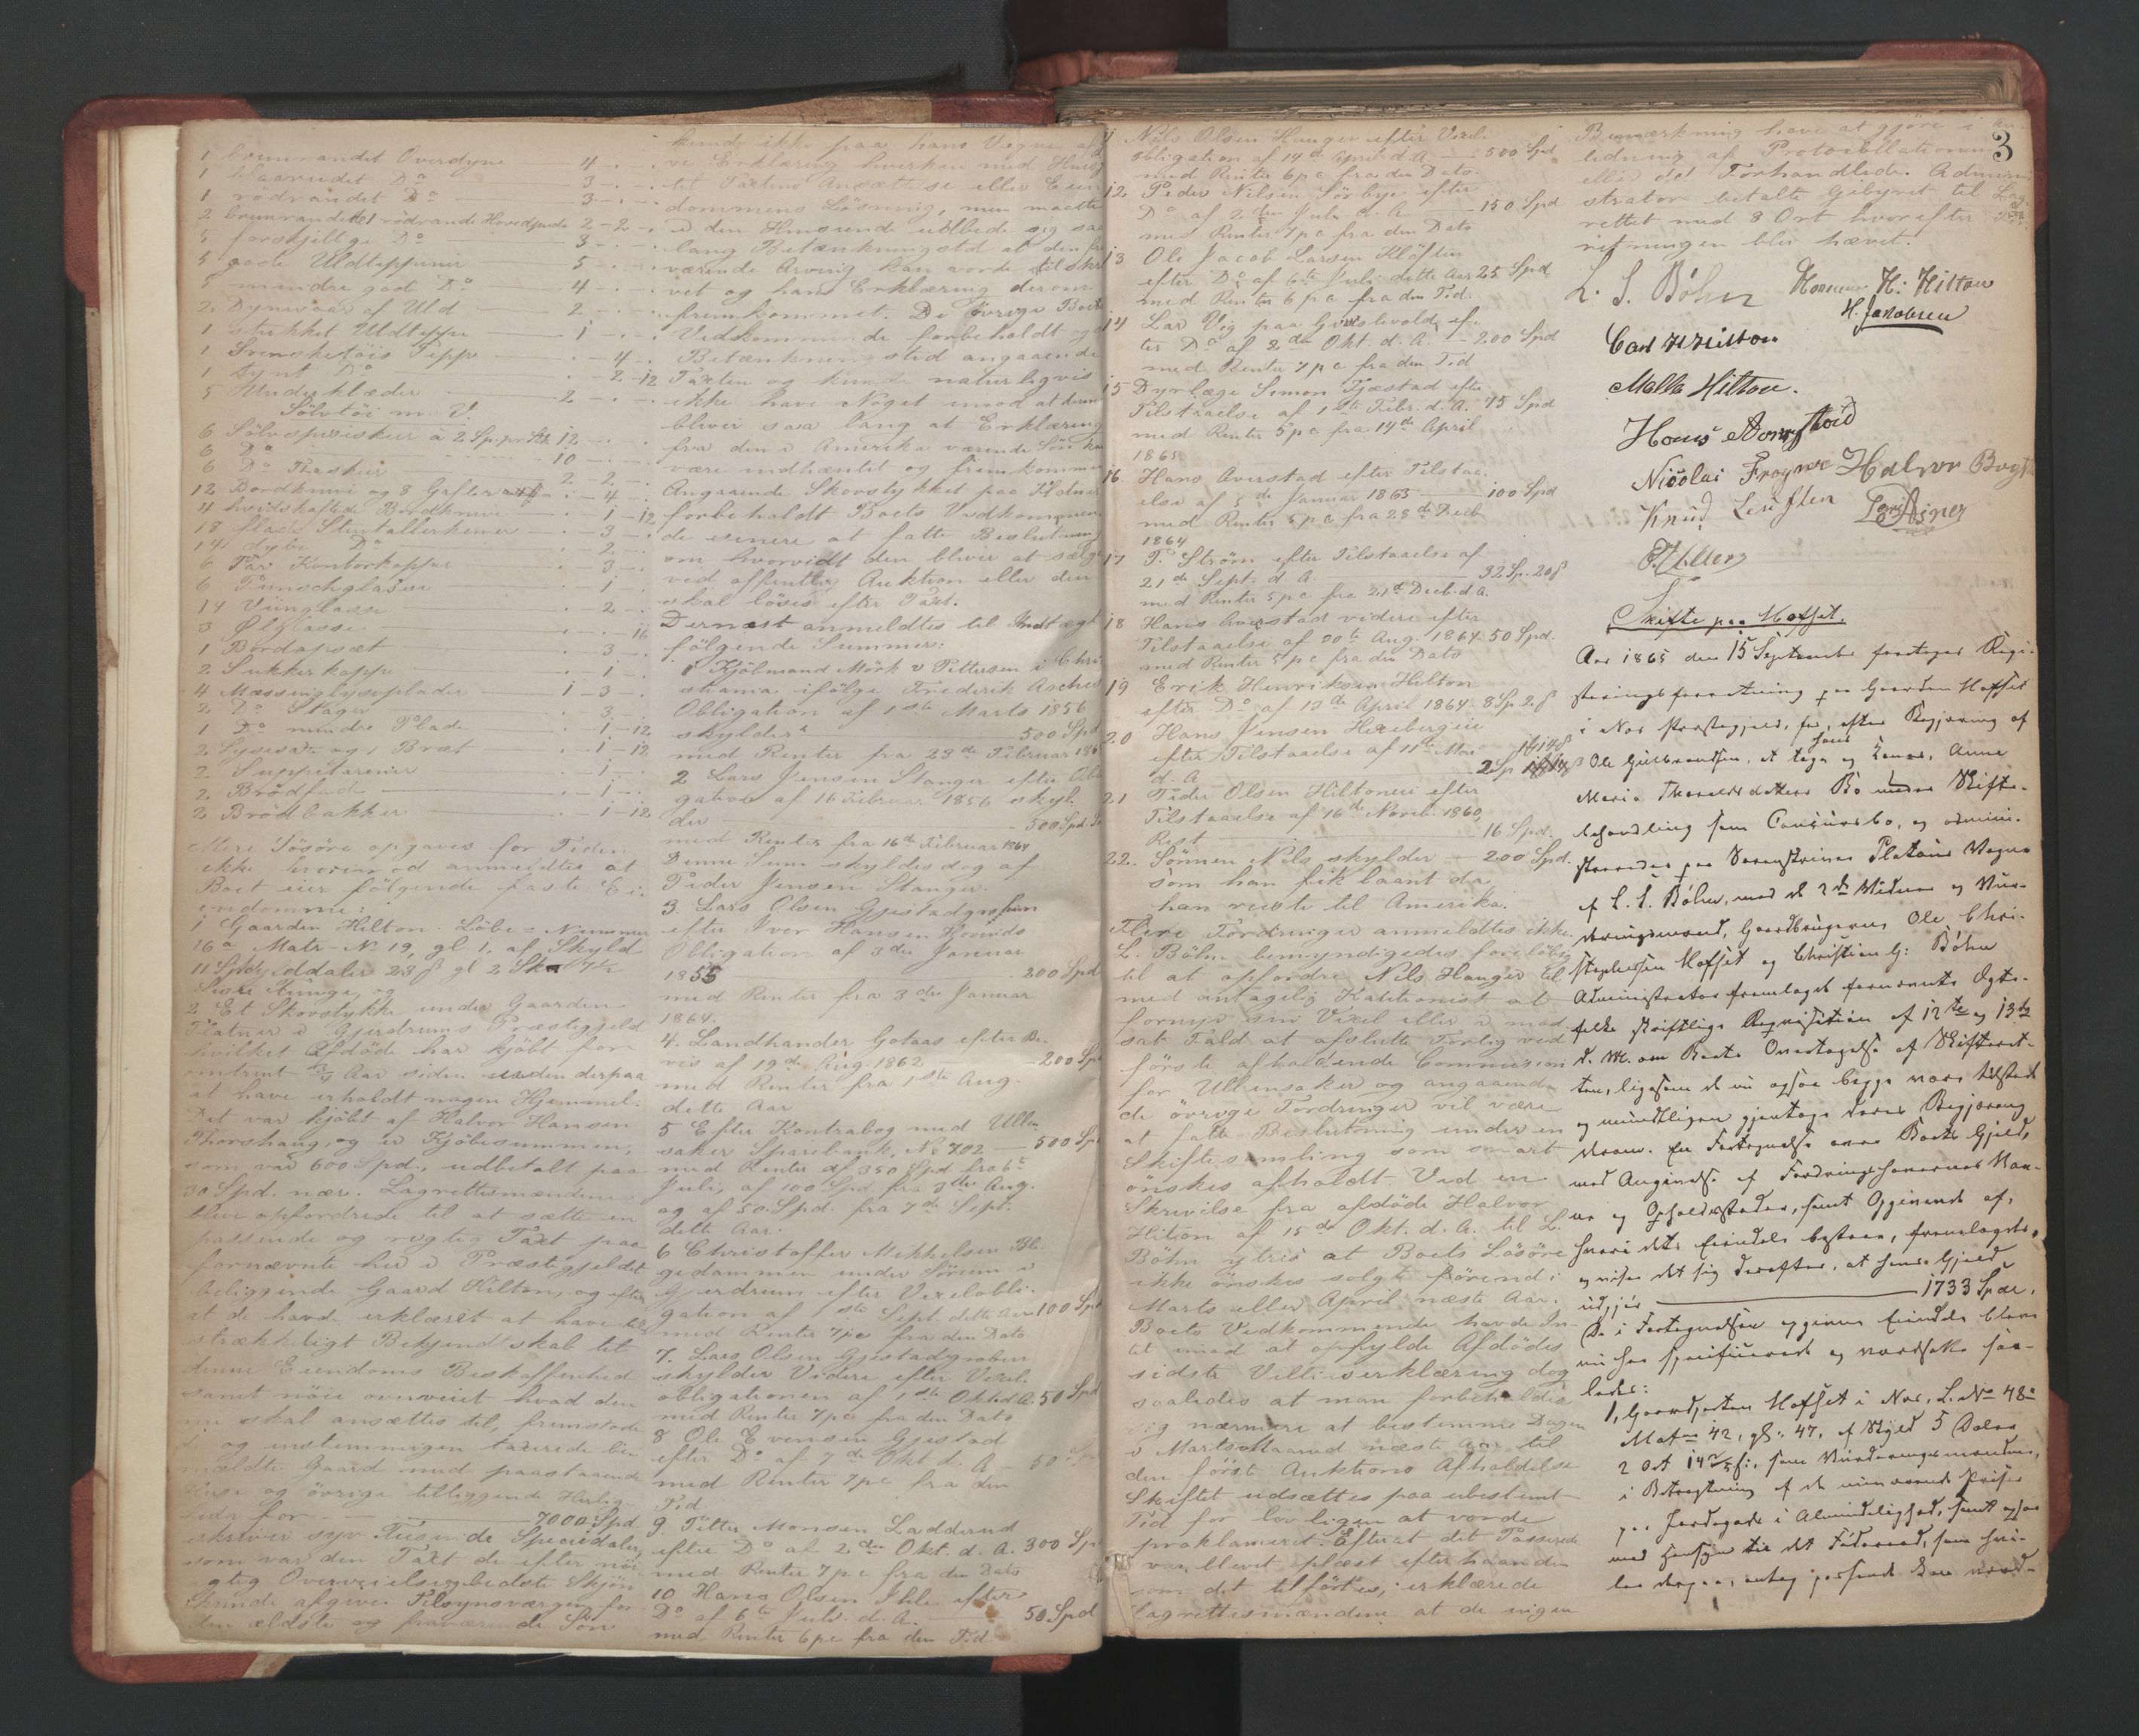 1 brunrandet Overdyne — 4 - . - .
1 blaarandet Do — 3 - . - .
1 rödrandet Do — 3 - . - .
2 brunrandede 1 rödrandet Hovedpude 2 - 2 - .
5 forskjellige Do — 3 - . - .
5 gode Uldtepper — 5 - . - .
5 mindre gode Do — 4 - . - .
2 Dynevaar af Uld — 2 - . - .
1 stukket Uldteppe — 1 - . - .
1 Svensketöis Teppe — . - 4 - .
1 Do — . - 2 - 12
5 Underklæder — 2 - . - .
Sölvtöi m. V.
6 Sölvspiseskeer à 2 Sp. pr Stk 12 - . - .
6 Do — 10 - . - .
6 Do Theskeer — 2 - 2 - .
12 Bordknive og 8 Gafler — . - 4 - .
4 hvidskaftede Bordknive — . - 1 - 12
18 flade Stentallerkener — . - 3 - .
14 dybe Do — . - 2 - .
6 Par Kopper — . - 3 - .
6 Punschglasse — . - 1 - .
14 Viinglasse — . - 2 - .
3 Ølglasse — . - . - 16
1 Bordopsæt — . - 3 - .
2 Sukkerkoppe — . - 1 - .
4 Messinglyseplader — 1 - 3 - .
2 Do Stager — . - 3 - .
1 Do mindre Plade — . - 1 - 12
2 Lysesaxe og 1 Bræt — . - 1 - 12
2 Suppeterriner — . - 1 - .
2 Brödfade — . - 1 - .
2 Brödbakker — . - 1 - 12
Mere Lösöre opgaves for Tiden
ikke hvorimod anmeldtes at
Boet eier fölgende faste Ei-
endomme:
1 Gaarden Hilton Löbe-Nummer
16a Matr-No 19, gl 1, af Skyld
11 Speciedaler 23 ß gl 2 Skp
og
2 Et Skovstykke under Gaarden
i Gjerdrums Præstegjeld
hvilket Afdöde har kjöbt for
omtrent Aar siden uden derpaa
at have erholdt nogen Hjemmel.
Det var kjöbt af Halvor Hansen
Thorshaug, og er Kjöbesummen,
som var 600 Spd., udbetalt paa
30 Spd. nær. Lagrettesmændene
bleve opfordrede til at sætte en
passende og rigtig Taxt paa
fornævnte her i Præstegjeldet
beliggende Gaard Hilton, og efter
at de havde erklæret at have til-
strækkeligt Bekjendtskab til
denne Eiendoms Beskaffenhed
samt nöie overveiet hvad den
nu skal ansættes til, fremstode
de og enstemmigen taxerede be-
meldte Gaard med paastaaende
Huse og övrige tilliggende Herlig-
heder for — 7000 Spd
skriver syv Tusinde Speciedaler,
som var den Taxt de efter nöi-
agtig Overveielse bedste Skjön
kunde afgive. Tilsynsværgen for
den ældste og fraværende Sön
kunde ikke paa hans Vegne afgi-
ve Erklæring hverken med Hensyn
til Taxtens Ansættelse eller Eien-
dommens Lösning, men maatte
i den Henseende udbede sig saa
lang Betænkningstid at den fra-
værende Arving kan vorde tilskre-
vet og hans Erklæring derom
fremkommet. De övrige Boets
Vedkommende forbeholdt og
Betænkningstid angaaende
Taxten og kunde naturligvis
ikke have Noget imod at denne
bliver saa lang at Erklæring
fra den i Amerika værende Sön kan
være indhentet og fremkommen
Angaaende Skovstykket paa
forbeholdt Boets Vedkommen-
de senere at fatte Beslutning
om hvorvidt den bliver at sælge
ved offentlig Auktion eller den
skal löses efter Taxt.
Dernæst anmeldtes til Indtægt
fölgende Summer:
1 Kjöbmand Mörk & Pettersen i Chri-
stiania ifölge Frederik Asches
Obligation af 1ste Marts 1856
skylder — 500 Spd
med Renter fra 23de Februar 186
2 Lars Jensen Stanger efter Obli-
gation af 16 Februar 1856 skyl-
der — 500 Spd
med Renter fra 16de Februar 1864
Denne Sum skyldes dog af
Peder Jensen Stanger.
3. Lars Olsen Gjestadgrofsen
efter Iver Hansen Hovinds
Obligation af 3die Januar
1855 — 200 Spd
med Renter fra 3die Januar
1864.
4. Landhandler Gotaas efter Be-
vis af 19de Aug. 1862 — 200 Spd
med Renter fra 1ste Aug.
dette Aar
5 Efter Kontrabog med Ullen-
saker Sparebank, No 702 — 500 Spd
med Renter af 350 Spd fra 6te
Juli, af 100 Spd. fra 3die Aug.
og af 50 Spd. fra 7de Sept.
dette Aar.
6 Christoffer Mikkelsen Bli-
gedammen under Sörum i
Gjerdrum efter Vexelobli-
gation af 1ste Sept. dette Aar 100 Spd
med Renter 7pc fra den Dato
7. Lars Olsen Gjestadgroben
skylder Videre efter Vexel-
obligationen af 1ste Oktbr d. A. 50 Spd
med Renter 7pc fra den Dato
8 Ole Evensen Gjestad
efter Do af 7de Okt d. A — 50 Spd
med Renter 7pc fra den
Tid
9. Petter Monsen Ladderud
efter Do af 2den Okt. d. A. 300 Sp
med Renter 7pc fra den Dato
10 Hans Olsen Ihle efter
Do af 6te Juli d. A. — 50 Spd
med Renter 6pc fra den Tid
3
11 Nils Olsen Hauger efter Vexel-
obligation af 14de April d. A. — 500 Spd
med Renter 6pc fra den Dato.
12. Peder Nilsen Sörbye efter
Do af 2den Juli d. A. — 150 Spd
med Renter 7pc fra den Dato
13 Ole Jacob Larsen Klöften
efter Do af 6te Juli dette Aar 25 Spd
med Renter 6pc fra den Tid.
14 Lars Vig paa Gjeistevold ef-
ter Do af 2den Okt. d. A. — 200 Spd
med Renter 7pc fra den Tid
15 Dyrlæge Simon Tjæstad efter
Tilstaaelse af 1ste Febr. d. A. 75 Spd
med Renter 5pc fra 14de April
1865
16. Hans Averstad efter Tilstaa-
else af 5de Januar 1863 — 100 Spd
med Renter 5pc fra 28de Decb
1864
17 P. Ström efter Tilstaaelse af
21de Sept. d. A. — 32 Sp. 20 ß
med Renter 5pc fra 21de Decb. d A.
18 Hans Averstad videre efter
Tilstaaelse af 20de Aug. 1864 50 Spd.
med Renter 5pc fra den Dato
19 Erik Henriksen Hilton
efter Do af 10de April 1864 8 Sp. 2 ß
20 Hans Jensen Hexebergeie
efter Tilstaaelse af 11te Mai
d. A — 2 Sp
21 Peder Olsen Hiltoneie efter
Tilstaaelse af 16de Novch. 1860,
Rest — 16 Spd.
22. Sönnen Nils skylder — 200 Spd.
som han fik laant da
han reiste til Amerika.
Flere Fordringer anmeldtes ikke.
L. Böhn bemyndigedes foreløbig
til at opfordre Nils Hauger til
med antagelig Kautionist at
fornye sin Vexel eller i mod-
sat Fald at afslutte Forlig ved
förste afholdende Commission
for Ullensaker og angaaende
de övrige Fordringer vil være
at fatte Beslutning under en
Skiftesamling som snart
önskes afholdt. Ved en
Skrivelse fra afdöde Halvor
Hilton af 15de Okt. d. A. til L.
Böhn ytres at Boets Lösöre
ikke önskes solgt förend i
Marts eller April næste Aar.
Boets Vedkommende havde In-
tet imod at opfylde Afdödes
sidste Villieserklæring dog
saaledes at man forbeholdt
sig nærmere at bestemme Dagen
i Marts Maaned næste Aar til
den först Auktions Afholdelse
Skiftet udsættes paa ubestemt
Tid for lovligen at vorde
proklameret. Efterat det Passerede
var blevet oplæst efterhaanden
som det tilförtes, erklærede
Lagrettesmændene at de ingen
Bemærkning have at gjöre i an-
ledning af Protocollationen
eller det Forhandlede. Admini-
strator betalte Gebyret til Lag-
rettet med 3 Ort hvorefter For-
retningen blev hævet.
L. S. Böhn H. Hilton
H. Jacobsen
Carl H Hilton
Malla Hilton.
Hans
Nicolai Frogner Halvor
Knud
Skifte paa Hofset.
Aar 1865 den 15 September foretoges Regi-
streringsforretning paa Gaarden Hofset
i Nes Præstegjeld, for, efter Begjæring af
Ole Gulbrandsen, at tage hans og Kones, Anne
Marie Thorvaldsdatters Bo under Skifte-
behandling som Concursbo, og admini-
streredes paa Sorenskriver Platous Vegne
af L. S. Böhn, med de 2de Vidner og Vur-
deringsmænd, Gaardbrugerne Ole Chri-
stophersen Hofset og Christian G: Böhn
Administrator fremlagde fornævnte Ægte-
folks skriftlige Reqvisition af 12te og 13de
d. M. om Boets Overtagelse af Skifteret-
ten, ligesom de nu ogsaa begge vare tilstede
og mundtligen gjentoge deres Begjæring
derom. En Fortegnelse over Boets Gjeld,
med Angivelse af Fordringshavernes Nav-
ne og Opholdssteder, samt Opgivende af,
hvori dets Eiendele bestaar, fremlagdes,
og viser det sig derefter, at hans Gjeld
udgjör — 1733 Spdr.
De i Fortegnelsen opgivne Eiendele bleve
nu her specificerede og værdsatte saa-
ledes:
1, Gaardparten Hofset i Nes, L. No 48a
Matr 42, gl: 47, af Skyld 5 Daler
2 Ort 14 ß:, som Vurderingsmændene,
i Betragtning af de nuværende Priser
paa Jordegods i Almindelighed, samt ogsaa
med Hensyn til det Föderaad, som hvi-
ler derpaa, antog passende kan værd-